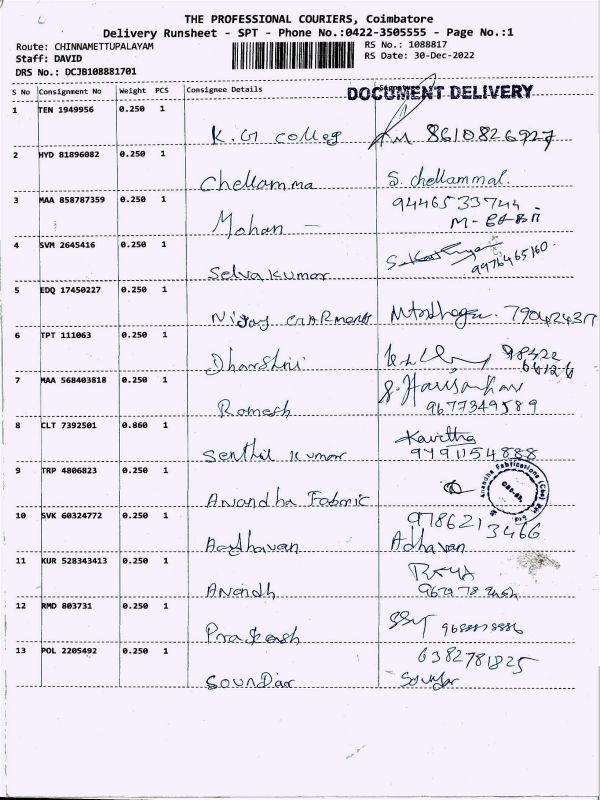 THE PROFESSIONAL COURIERS, Coimbatore
Delivery Runsheet - SPT - Phone No.:0422-3505555 - Page No.:1
Route: CHINNAMETTUPALAYAM
RS No.: 1088817
Staff: DAVID
RS Date: 30-Dec-2022
DRS No.: DCJB108881701
S No Consignment No Weight PCS Consignee Details
DOCUMENT DELIVERY
1 TEN 1949956 0.250 1
K.G College 8610826927
2 HYD 81896082 0.250 1
Chellamma S. chellammal.
3 MAA 858787359 0.250 1 9446533744
Mohan -
4 SVM 2645416 0.250 1
Selvakumar 9976465160.
5 EDQ 17450227 0.250 1
GARMENTS
6 TPT 111063 0.250 1
Dharshini
7 MAA 568403818 0.250 1
Ramesh 9677349589
8 CLT 7392501 0.860 1 Kavitha
Senthil Kumar
9 TRP 4806823 0.250 1
Anandha Fabric
Anandha Fabrications
10 SVK 60324772 0.250 1 9786213466
Aadhavan Adhavan
11 KUR 528343413 0.250 1
Anandh
12 RMD 803731 0.250 1
Prakash
13 POL 2205492 0.250 1 6382781825
SOUNDar